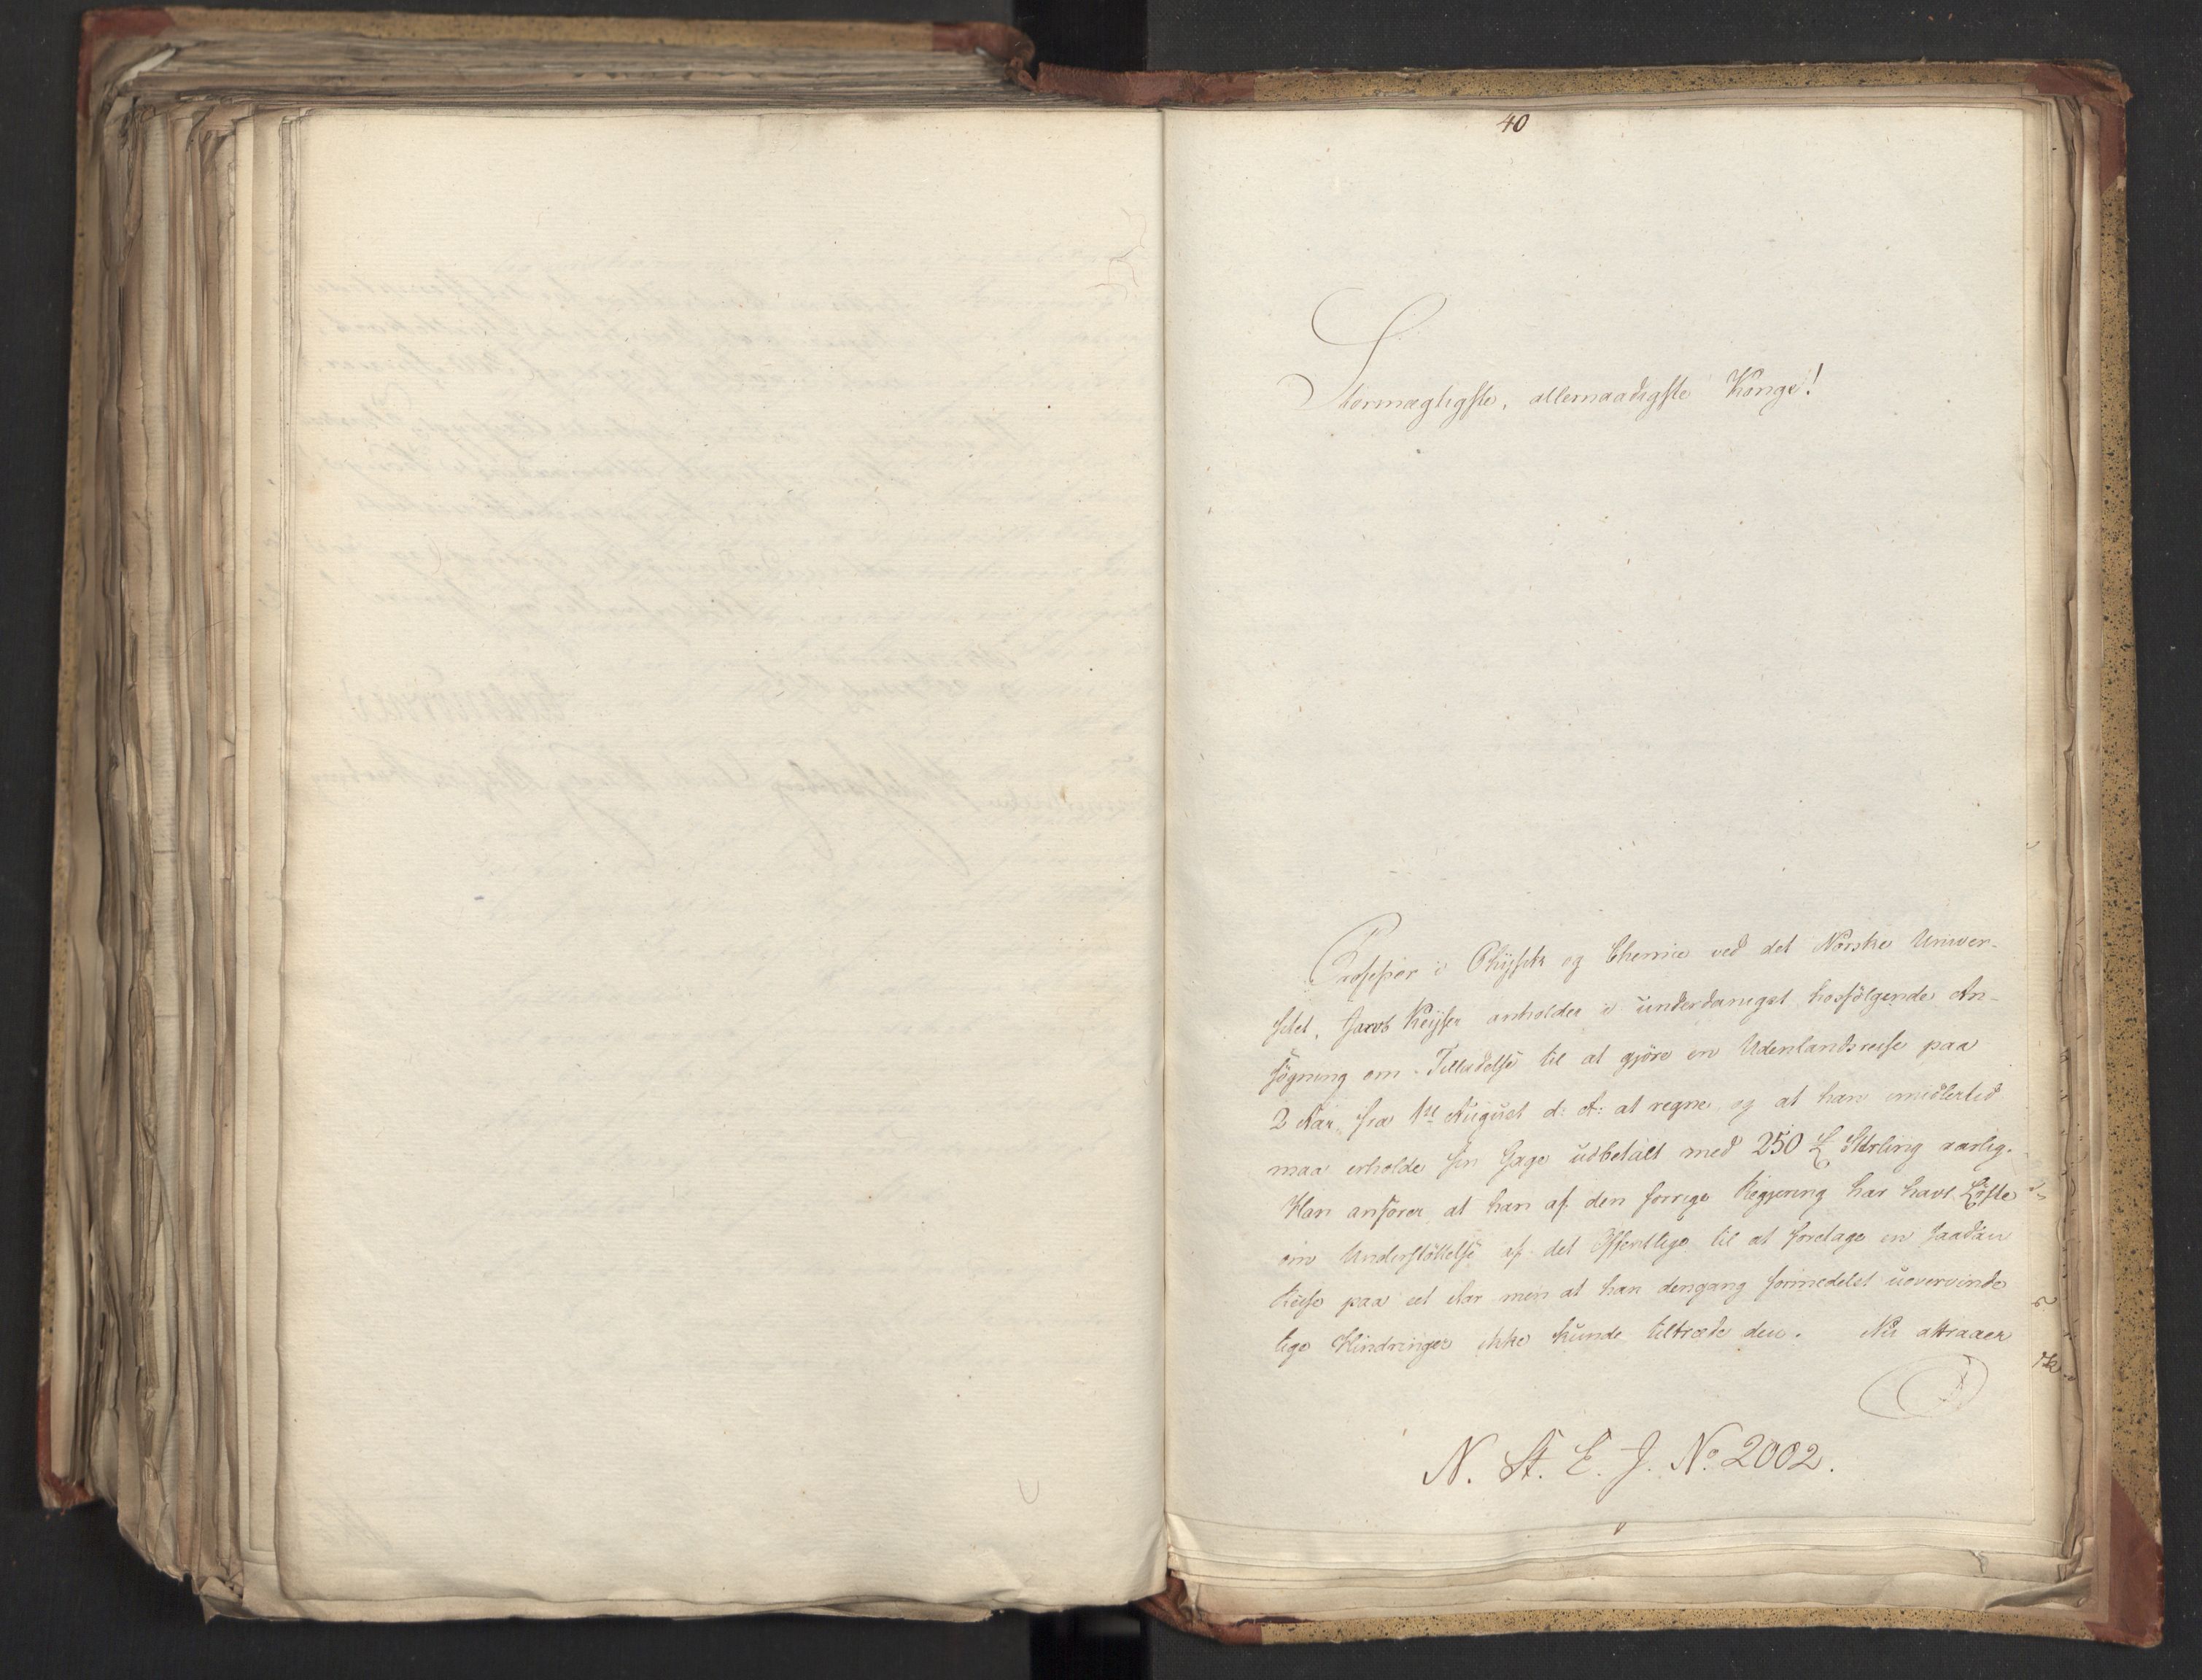 40
Stormægtigste, allernaadigste Konge!
Professor i Physik og Chemie ved det Norske Univer-
sitet, Jacob Keyser anholder i underdanigst hosfölgende An-
sögning om Tilladelse til at gjöre en Udenlandsreise paa
2 Aar, fra 1ste August d: A: at regne, og at han imidlertid
maa erholde sin Gage udbetalt med 250 £ Sterling aarlig.
Han anförer, at han af den forrige Regjering har havt Löfte
om Understöttelse af det Offentlige til at foretage en saadan
Reise paa eet Aar men at han dengang formedelst uovervinde
lige Hindringer ikke kunde tiltræde den. Nu attraaer
N. St. E. J. No 2002.